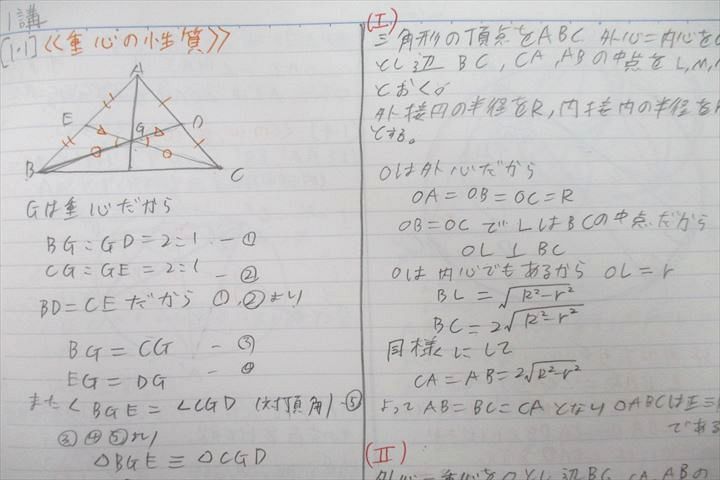 1講
[1・1] 《重心の性質》
A
E
D
G
B
C
Gは重心だから
BG:GD=2:1 ー①
CG:GE=2:1 ー②
BD=CEだから ①,②より
BG=CG ー③
EG=DG ー④
また∠BGE=∠CGD (対頂角) ー⑤
③④⑤より
△BGE≡△CGD
(I)
三角形の頂点をABC 外心=内心を
とし辺 BC, CA, ABの中点を L, M,
とおく。
外接円の半径をR, 内接円の半径を
とする。
Oは外心だから
OA=OB=OC=R
OB=OC で LはBCの中点だから
OL⊥BC
Oは内心でもあるから OL=r
BL=√R²-r²
BC=2√R²-r²
同様にして
CA=AB=2√R²-r²
よって AB=BC=CA となり △ABCは正三
である
(II)
外心=重心をOとし辺BC, CA, ABの